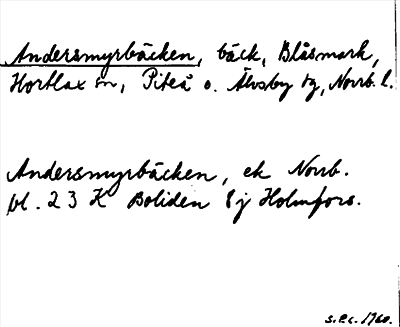 Andersmyrbäcken, bäck, Blåsmark,
Hortlax sn, Piteå o. Älvsby tg, Norrb. l.
Andersmyrbäcken, ek Norrb.
bl. 23 K Boliden 8j Holmfors.
s.e.s. 1760.